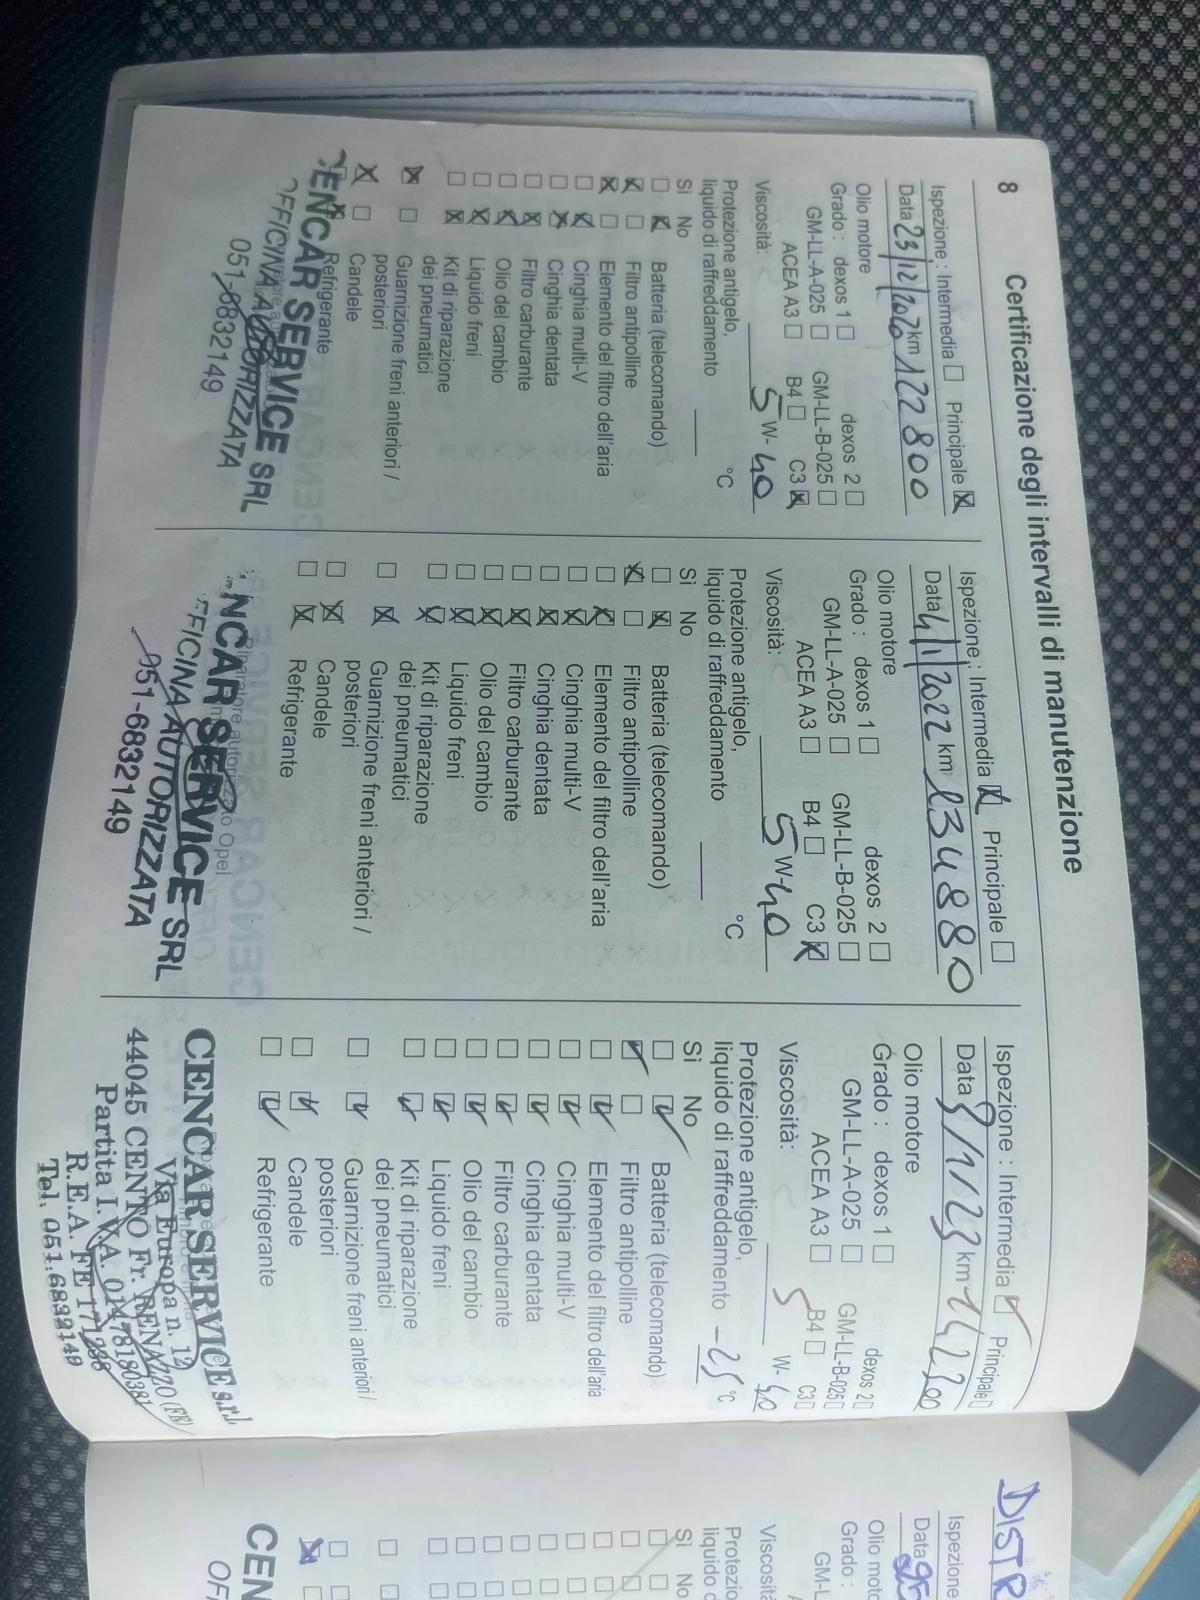 8 Certificazione degli intervalli di manutenzione
Ispezione : Intermedia ☐ Principale ☒
Data 23/12/2020 km 122800
Olio motore
Grado : dexos 1 ☐ dexos 2 ☐
GM-LL-A-025 ☐ GM-LL-B-025 ☐
ACEA A3 ☐ B4 ☐ C3 ☒
Viscosità: 5 W- 40
Protezione antigelo,
liquido di raffreddamento °C
Sì No
☐ ☒ Batteria (telecomando)
☒ ☐ Filtro antipolline
☒ ☐ Elemento del filtro dell'aria
☐ ☒ Cinghia multi-V
☐ ☒ Cinghia dentata
☐ ☒ Filtro carburante
☐ ☒ Olio del cambio
☐ ☒ Liquido freni
☐ ☒ Kit di riparazione
dei pneumatici
☒ ☐ Guarnizione freni anteriori /
posteriori
☒ ☐ Candele
Refrigerante
CENCAR SERVICE SRL
OFFICINA AUTORIZZATA
051-6832149
Ispezione : Intermedia ☒ Principale ☐
Data 4/1/2022 km 134880
Olio motore
Grado : dexos 1 ☐ dexos 2 ☐
GM-LL-A-025 ☐ GM-LL-B-025 ☐
ACEA A3 ☐ B4 ☐ C3 ☒
Viscosità: 5 W- 40
Protezione antigelo,
liquido di raffreddamento °C
Sì No
☐ ☒ Batteria (telecomando)
☒ ☐ Filtro antipolline
☐ ☒ Elemento del filtro dell'aria
☐ ☒ Cinghia multi-V
☐ ☒ Cinghia dentata
☐ ☒ Filtro carburante
☐ ☒ Olio del cambio
☐ ☒ Liquido freni
☐ ☒ Kit di riparazione
dei pneumatici
☐ ☒ Guarnizione freni anteriori /
posteriori
☐ ☒ Candele
☐ ☒ Refrigerante
NCAR SERVICE SRL
FFICINA AUTORIZZATA
051-6832149
Ispezione : Intermedia ☑ Principale ☐
Data 9/1/23 km 142200
Olio motore
Grado : dexos 1 ☐ dexos 2 ☐
GM-LL-A-025 ☐ GM-LL-B-025 ☐
ACEA A3 ☐ B4 ☐ C3 ☐
Viscosità: 5 W- 40
Protezione antigelo,
liquido di raffreddamento -25 °C
Sì No
☐ ☑ Batteria (telecomando)
☑ ☐ Filtro antipolline
☐ ☑ Elemento del filtro dell'aria
☐ ☑ Cinghia multi-V
☐ ☑ Cinghia dentata
☐ ☑ Filtro carburante
☐ ☑ Olio del cambio
☐ ☑ Liquido freni
☐ ☑ Kit di riparazione
dei pneumatici
☐ ☑ Guarnizione freni anteriori /
posteriori
☐ ☑ Candele
☐ ☑ Refrigerante
CENCAR SERVICE s.r.l.
Via Europa n. 12
44045 CENTO Fr. RENAZZO (FE)
Partita I.VA. 01478180381
R.E.A. FE 171238
Tel. 051.6832149
DISTR
Ispezione
Data
Olio moto
Grado :
GM-L
Viscosità:
Protezio
liquido d
Sì No
CEN
OF